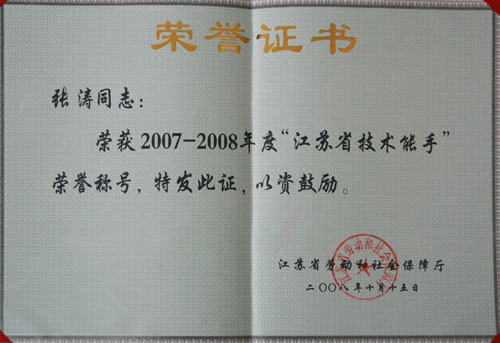 荣誉证书
张涛同志：
荣获2007-2008年度“江苏省技术能手”
荣誉称号，特发此证，以资鼓励。
江苏省劳动和社会保障厅
二〇〇八年十月十五日